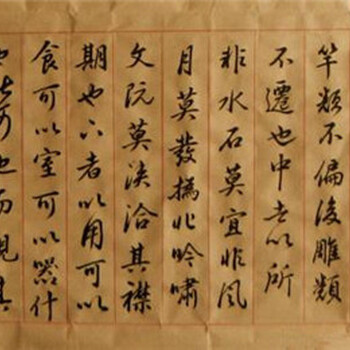 竿類不偏後雕類
不遷也中以所
非水石莫宜非風
月莫發攄非吟嘯
文阮莫浹洽其襟
期也六者以用可以
食可以室可以器什
也而其